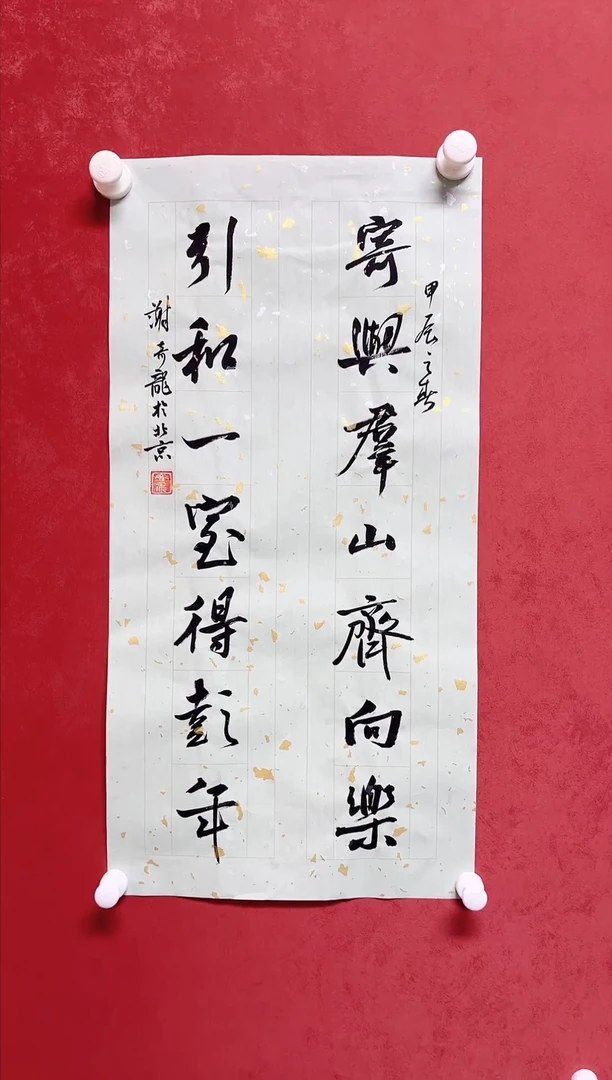 甲辰之春
寄興羣山齊向樂
引和一室得彭年
謝奇龍於北京